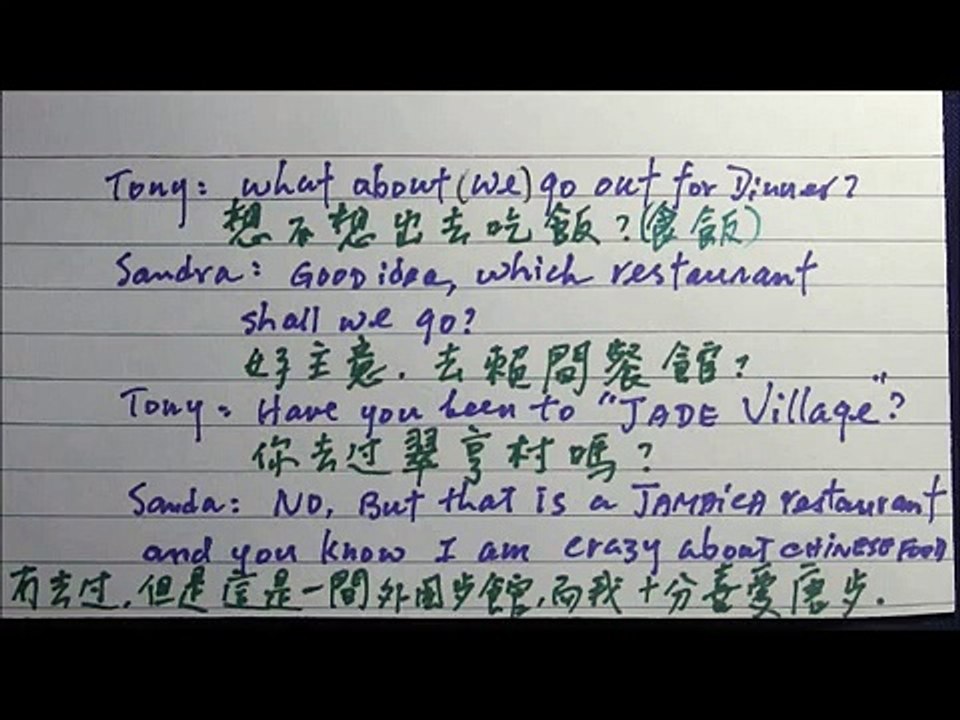 Tony: what about (we) go out for Dinner?
想不想出去吃飯？(食飯)
Sandra: Good idea, which restaurant
shall we go?
好主意. 去賴間餐館?
Tony: Have you been to "JADE Village"?
你去过翠亨村嗎?
Sanda: NO, But that is a JAMAiCA restaurant
and you know I am crazy about CHINESE FOOD
冇去过, 但是這是一間外國步館, 而我十分喜愛唐步.